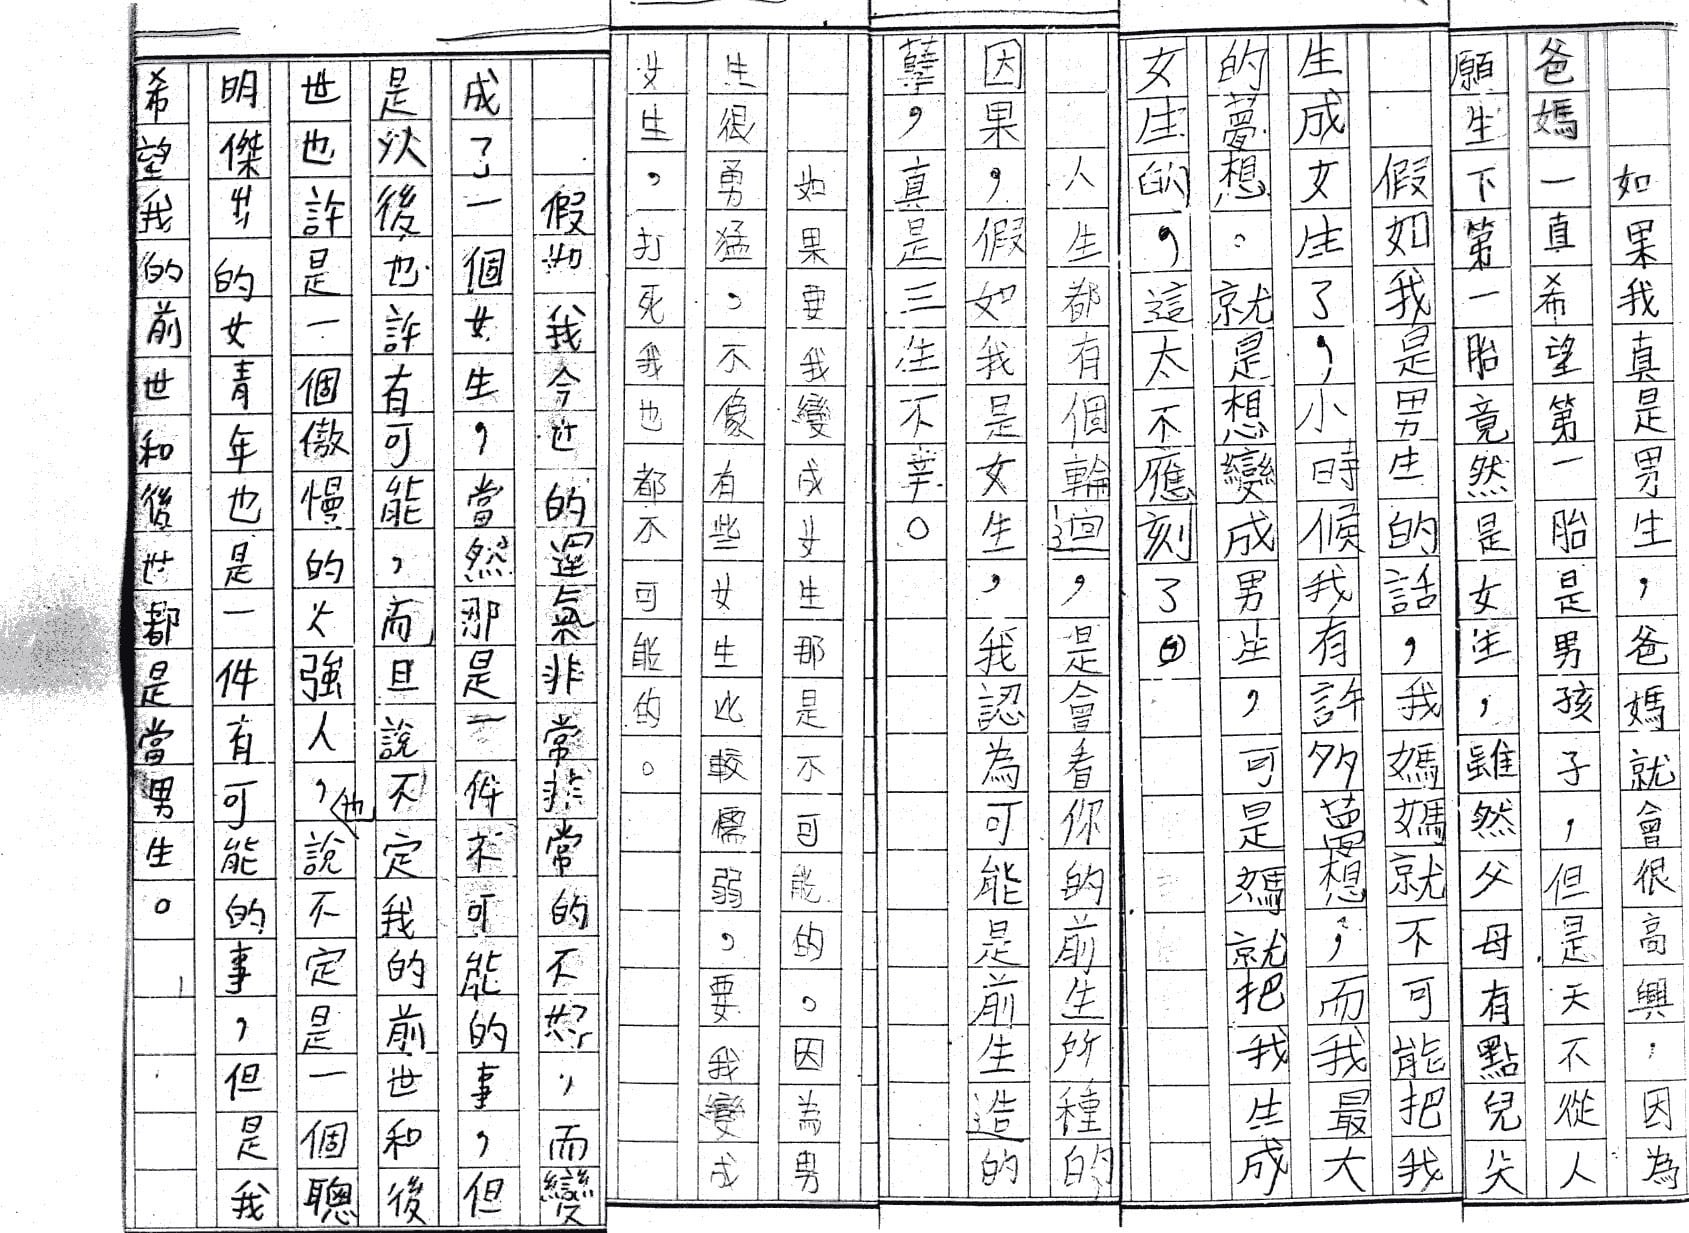 如果我真是男生，爸媽就會很高興，因為
爸媽一真希望第一胎是男孩子，但是天不從人
願生下第一胎竟然是女生，雖然父母有點兒失
假如我是男生的話，我媽媽就不可能把我
生成女生了，小時候我有許多夢想，而我最大
的夢想。就是想變成男生，可是媽就把我生成
女生的，這太不應刻了。
人生都有個輪迴，是會看你的前生所種的
因果，假如我是女生，我認為可能是前生造的
孽，真是三生不幸。
如果要我變成女生那是不可能的。因為男
生很勇猛，不像有些女生比較懦弱，要我變成
女生，打死我也都不可能的。
假如我今世的運氣非常非常的不好，而變
成了一個女生，當然那是一件不可能的事，但
是以後也許有可能，而且說不定我的前世和後
世也許是一個傲慢的女強人，也說不定是一個聰
明傑出的女青年也是一件有可能的事，但是我
希望我的前世和後世都是當男生。